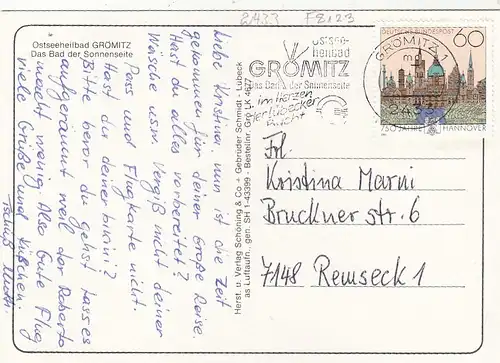 2433 F8123
Ostseeheilbad GRÖMITZ
Das Bad der Sonnenseite
Liebe Kristina, nun ist die Zeit
gekommen für deiner Große Reise.
Hast du alles vorbereitet?
Wäsche usw. Vergiß nicht deiner
Pass und Flugkarte nicht.
Hast du deiner
Bitte bevor du gehst lasses
aufgeräumt weil der Roberto
macht wenig Also Gute Flug
viele Grüße und Küßchen.
Tschüß
Herst. u. Verlag Schöning & Co + Gebrüder Schmidt · Lübeck
als Luftaufn. gen. SH 1-43399 - Bestellnr. Grö LK 4677
ostsee-
heilbad
GRÖMITZ
Das Bad der Sonnenseite
im Herzen
der Lübecker
Bucht
GRÖMITZ
DEUTSCHE BUNDESPOST
60
750 JAHRE HANNOVER
Frl.
Kristina Marni
Bruckner str. 6
7148 Remseck 1